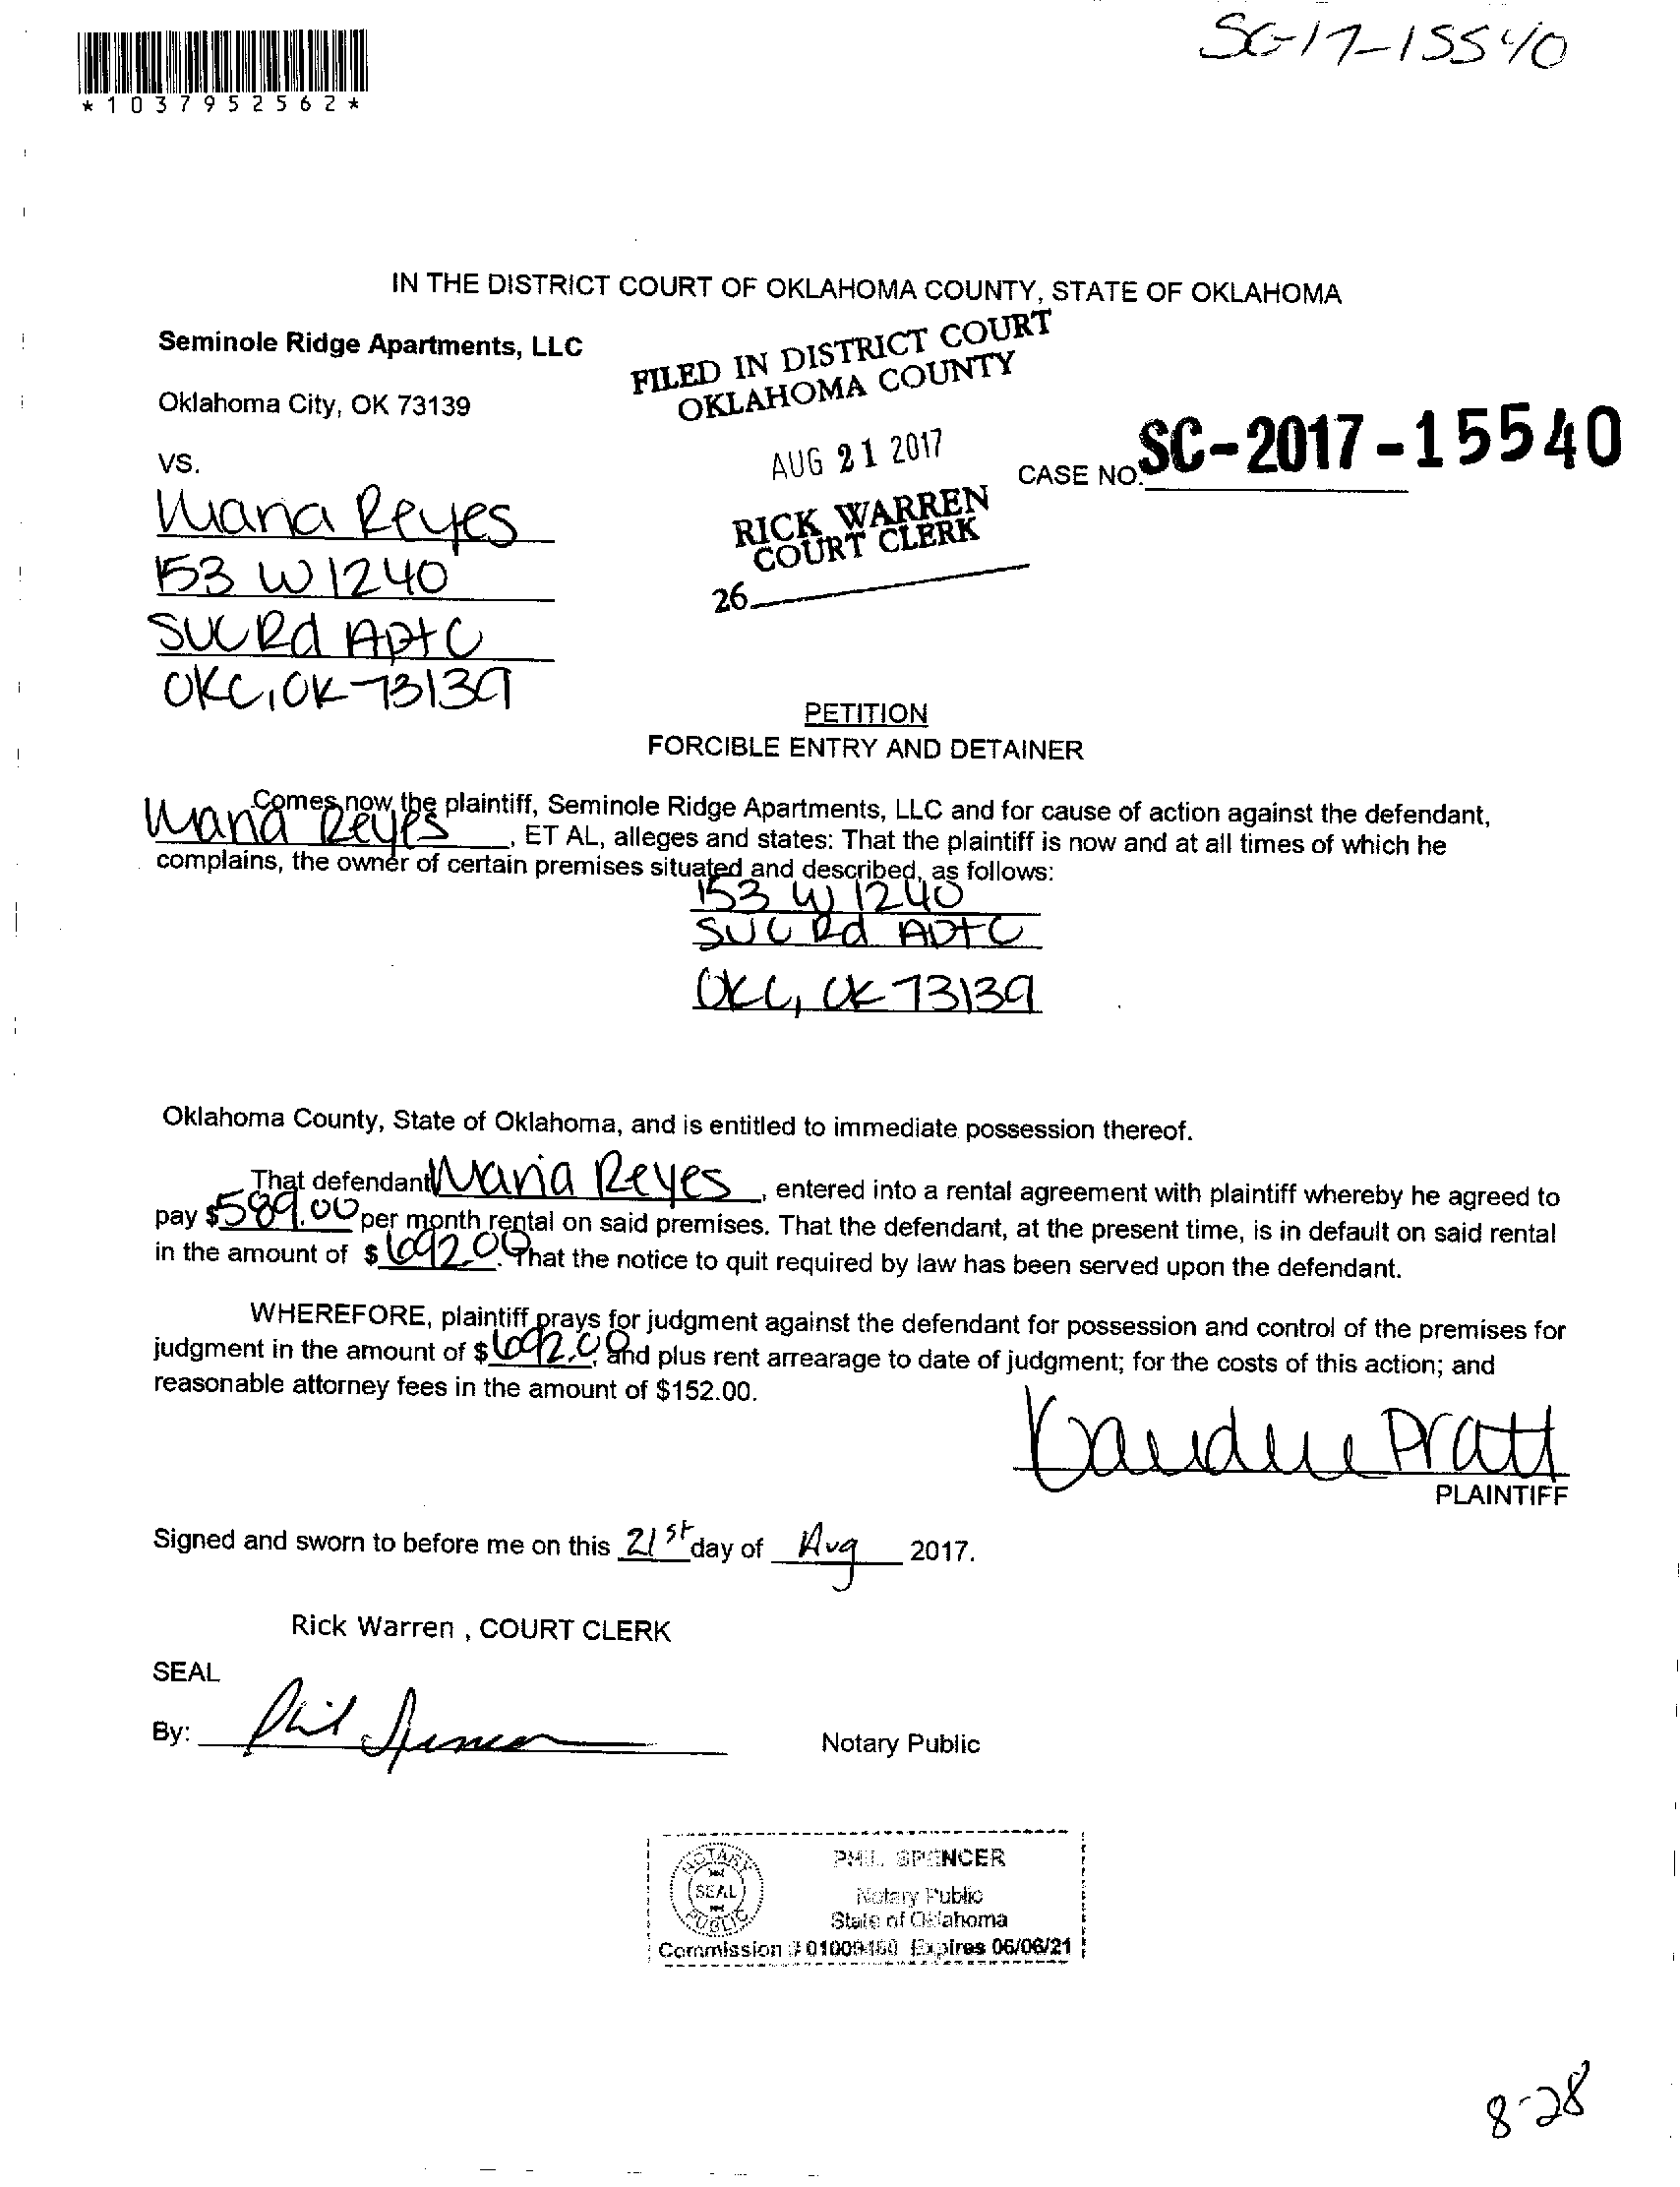 SC-17-15540
*1037952562*
IN THE DISTRICT COURT OF OKLAHOMA COUNTY, STATE OF OKLAHOMA
Seminole Ridge Apartments, LLC
Oklahoma City, OK 73139
FILED IN DISTRICT COURT
OKLAHOMA COUNTY
AUG 21 2017
RICK WARREN
COURT CLERK
26
CASE NO. SC-2017-15540
VS.
Maria Reyes
153 W 1240
SVC Rd Apt C
OKC, OK 73139
PETITION
FORCIBLE ENTRY AND DETAINER
Comes now, the plaintiff, Seminole Ridge Apartments, LLC and for cause of action against the defendant,
Maria Reyes, ET AL, alleges and states: That the plaintiff is now and at all times of which he
complains, the owner of certain premises situated and described, as follows:
153 W 1240
SVC Rd Apt C
OKC, OK 73139
Oklahoma County, State of Oklahoma, and is entitled to immediate possession thereof.
That defendant Maria Reyes, entered into a rental agreement with plaintiff whereby he agreed to
pay $589.00 per month rental on said premises. That the defendant, at the present time, is in default on said rental
in the amount of $692.00. That the notice to quit required by law has been served upon the defendant.
WHEREFORE, plaintiff prays for judgment against the defendant for possession and control of the premises for
judgment in the amount of $692.00, and plus rent arrearage to date of judgment; for the costs of this action; and
reasonable attorney fees in the amount of $152.00.
Pratt
PLAINTIFF
Signed and sworn to before me on this 21st day of Aug 2017.
Rick Warren , COURT CLERK
SEAL
By: Phil Spencer
Notary Public
NOTARY
SEAL
PUBLIC
PHIL SPENCER
Notary Public
State of Oklahoma
Commission # Expires 06/06/21
8-28